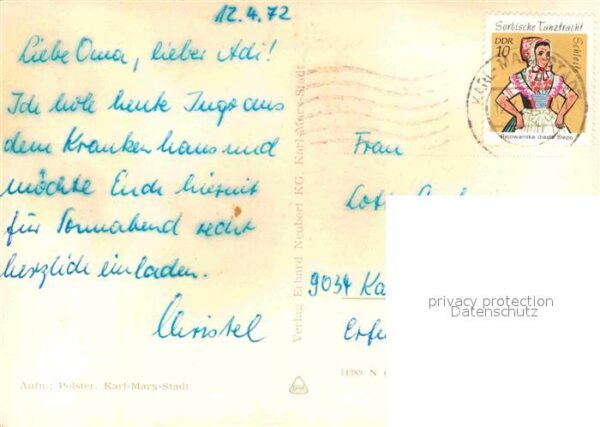 12.4.72
Liebe Oma, lieber Adi!
Ich hole heute Ingo aus
dem Krankenhaus und
möchte Euch hiermit
für Sonnabend recht
herzlich einladen.
Christel
Aufn.: Polster, Karl-Marx-Stadt
Verlag Erhard Neubert KG, Karl-Marx-Stadt
Sorbische Tanztracht
Schleife
DDR
10
Rejowanska drasta Slepo
KARL-MARX-ST
Frau
9034 Ka
Erfu
privacy protection
Datenschutz